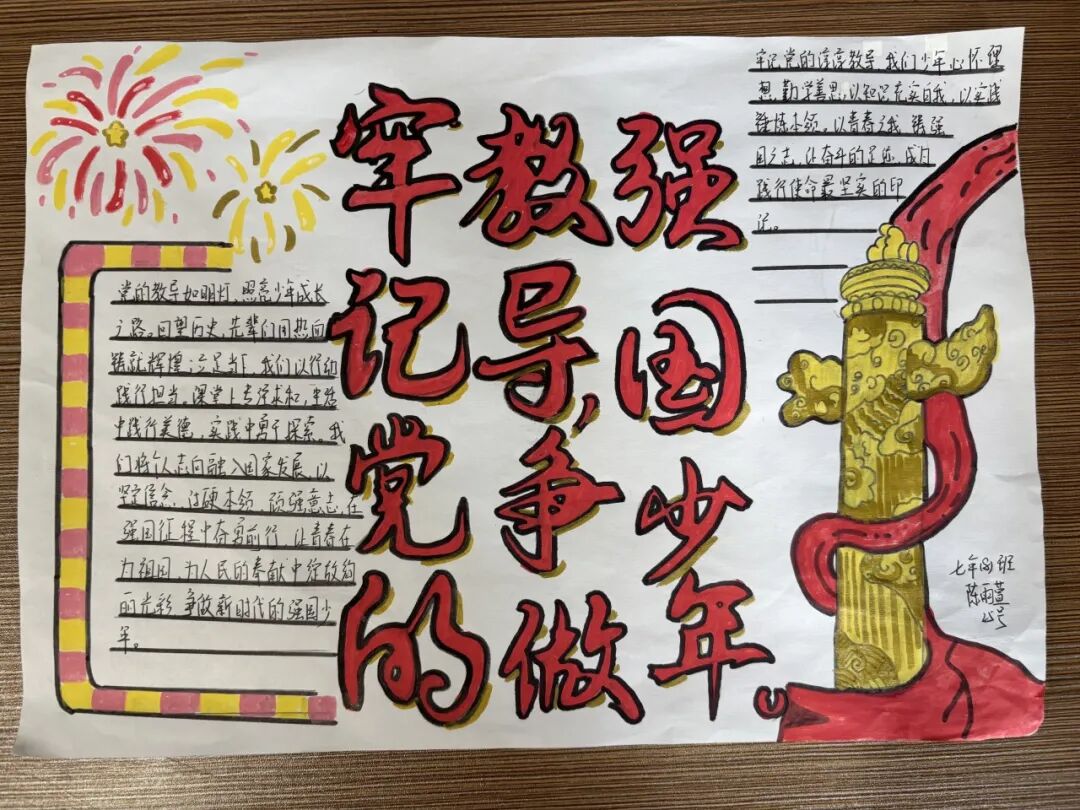 牢记党的
教导，争做
强国少年。
党的教导如明灯，照亮少年成长
之路。回望历史，先辈们用热血
铸就辉煌；立足当下，我们以行动
践行担当。课堂上专注求知，生活
中践行美德，实践中勇于探索。我
们将个人志向融入国家发展，以
坚定信念、过硬本领、顽强意志，在
强国征程中奋勇前行，让青春在
为祖国、为人民的奉献中绽放绚
丽光彩，争做新时代的强国少
年。
牢记党的谆谆教导，我们少年心怀理
想，勤学善思，以知识充实自我，以实践
锤炼本领。以青春之我，铸强
国之志，让奋斗的足迹，成为
践行使命最坚实的印
记。
七年(3)班
陈雨萱
25号